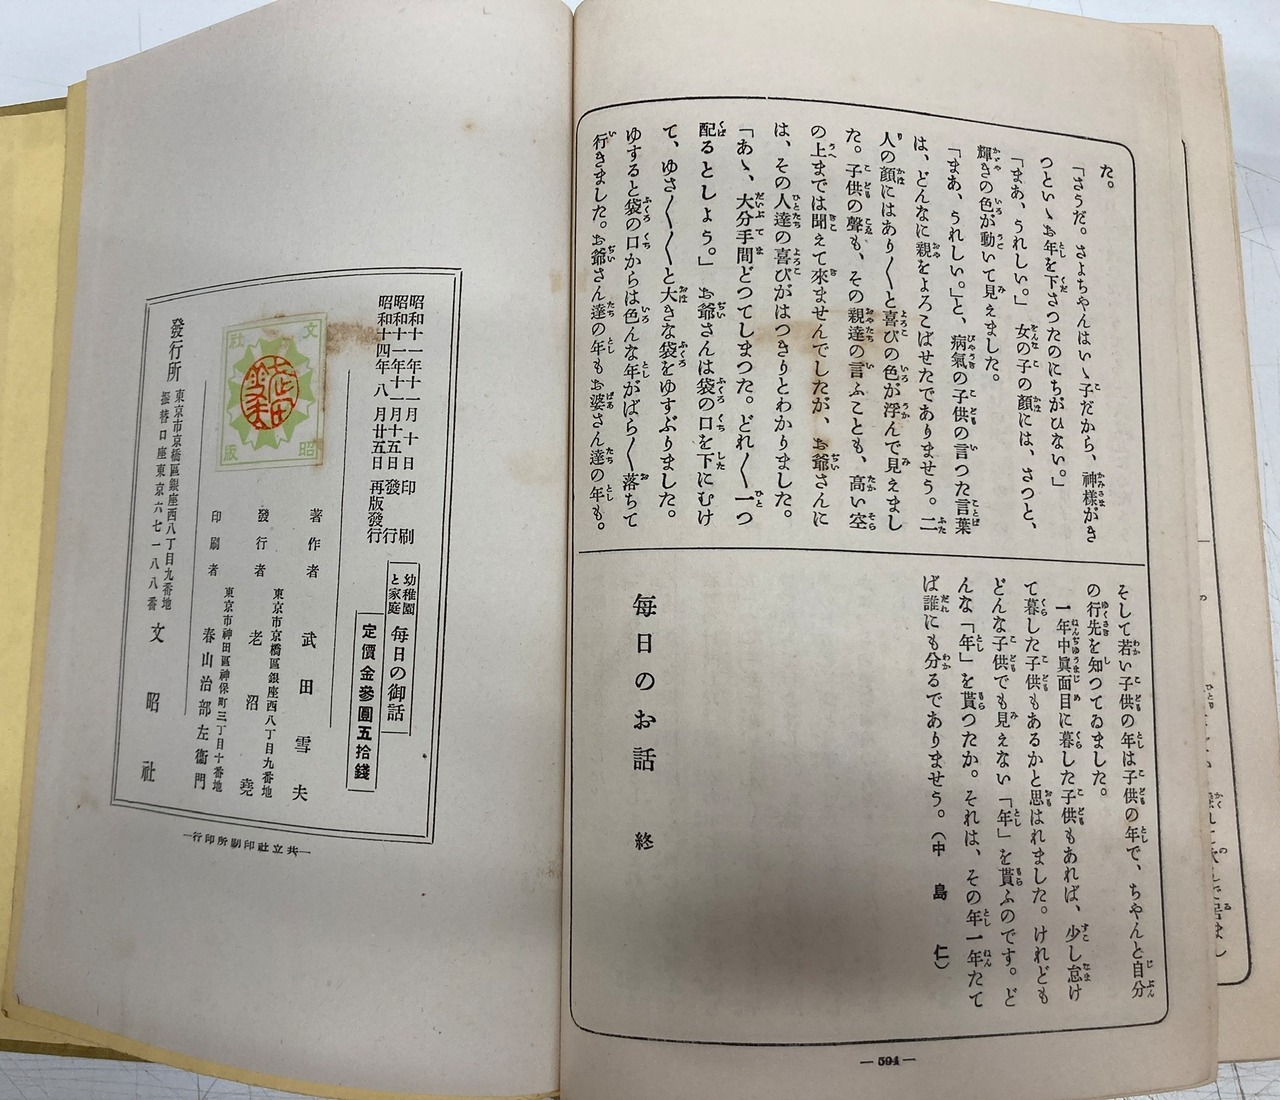 た。
「さうだ。さよちやんはいゝ子だから、神様がき
つといゝお年を下さつたのにちがひない。」
「まあ、うれしい。」女の子の顔には、さつと、
輝きの色が動いて見えました。
「まあ、うれしい。」と、病氣の子供の言つた言葉
は、どんなに親をよろこばせたでありませう。二
人の顔にはあり〳〵と喜びの色が浮んで見えまし
た。子供の聲も、その親達の言ふことも、高い空
の上までは聞えて來ませんでしたが、お爺さんに
は、その人達の喜びがはつきりとわかりました。
「あゝ、大分手間どつてしまつた。どれ〳〵一つ
配るとしよう。」お爺さんは袋の口を下にむけ
て、ゆさ〳〵〳〵と大きな袋をゆすぶりました。
ゆすると袋の口からは色んな年がばら〳〵落ちて
行きました。お爺さん達の年もお婆さん達の年も。
そして若い子供の年は子供の年で、ちやんと自分
の行先を知つてゐました。
一年中眞面目に暮した子供もあれば、少し怠け
て暮した子供もあるかと思はれました。けれども
どんな子供でも見えない「年」を貰ふのです。ど
んな「年」を貰つたか。それは、その年一年たて
ば誰にも分るでありませう。(中島仁)
毎日のお話 終
—594—
昭和十一年十一月十日印刷
昭和十一年十一月十五日發行
昭和十四年八月廿五日再版發行
幼稚園と家庭 毎日の御話
定價金參圓五拾錢
文昭社版
著作者 武田雪夫
東京市京橋區銀座西八丁目九番地
發行者 老沼堯
東京市神田區神保町三丁目十番地
印刷者 春山治部左衞門
發行所 東京市京橋區銀座西八丁目九番地 文昭社
振替口座東京六七一八八番
—共立社印刷所印行—